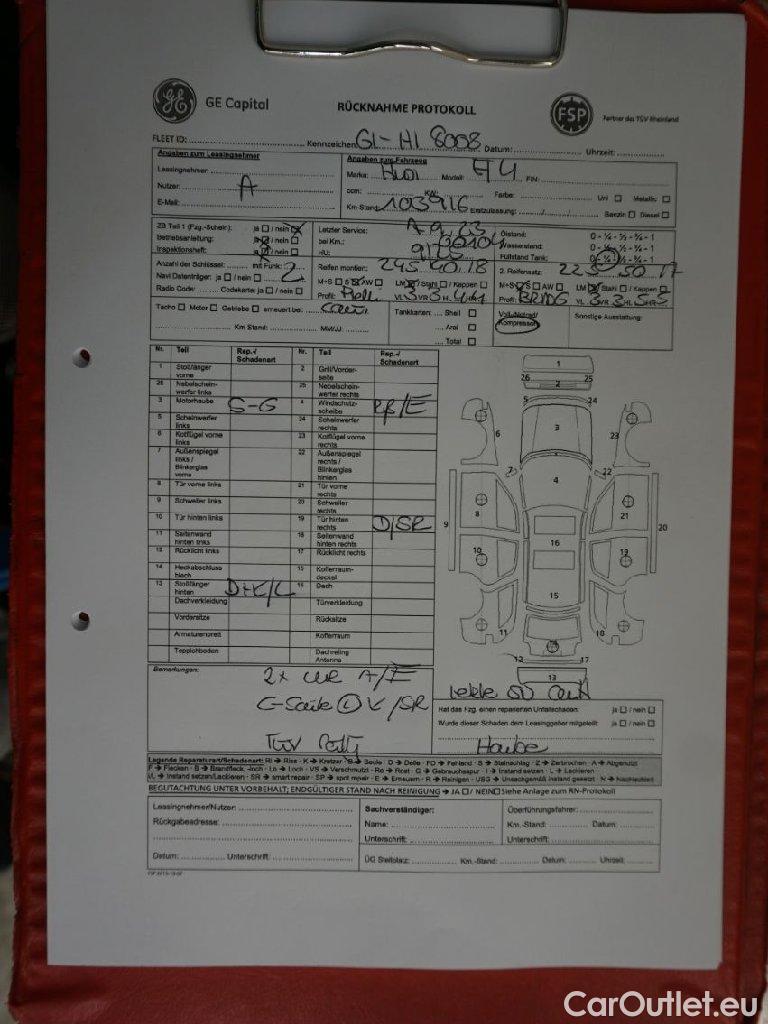 GE Capital
RÜCKNAHME PROTOKOLL
FSP
Partner des TÜV Rheinland
FLEET ID: Kennzeichen GI-HI 8008 Datum: Uhrzeit:
Angaben zum Leasingnehmer
Leasingnehmer:
Nutzer: A
E-Mail:
Angaben zum Fahrzeug
Marke: Audi Modell: A4 FIN:
ccm: KW: Farbe: Uni Metallic
Km-Stand: 103916 Erstzulassung: / / Benzin Diesel
ZB Teil 1 (Fzg.-Schein): ja / nein
Betriebsanleitung: ja / nein
Inspektionsheft: ja / nein
Letzter Service: 9.23
bei Km.:
HU:
Ölstand: 0 - ¼ - ½ - ¾ - 1
Wasserstand: 0 - ¼ - ½ - ¾ - 1
Füllstand Tank: 0 - ¼ - ½ - ¾ - 1
Anzahl der Schlüssel: mit Funk: 2
Navi Datenträger: ja / nein
Radio Code: Codekarte: ja / nein
Reifen montiert: 245 40 18
M+S S AW LM / Stahl / Kappen
Profil: VL 5 VR 5 HL HR
2. Reifensatz: 225 50 17
M+S S AW LM Stahl / Kappen
Profil: VL 5 VR 5 HL 5 HR 5
Tacho Motor Getriebe erneuert bei:
Km Stand: MWJU:
Tankkarten: Shell
Aral
Total
Voll-/Notrad/
Kompressor
Sonstige Ausstattung:
Nr. Teil Rep.-/ Schadenart Nr. Teil Rep.-/ Schadenart
1 Stoßfänger vorne 2 Grill/Vorderseite
26 Nebelscheinwerfer links 25 Nebelscheinwerfer rechts
3 Motorhaube S-G 4 Windschutzscheibe /E
5 Scheinwerfer links 24 Scheinwerfer rechts
6 Kotflügel vorne links 23 Kotflügel vorne rechts
7 Außenspiegel links / Blinkerglas vorne 22 Außenspiegel rechts / Blinkerglas hinten
8 Tür vorne links 21 Tür vorne rechts
9 Schweller links 20 Schweller rechts
10 Tür hinten links 19 Tür hinten rechts D/SR
11 Seitenwand hinten links 18 Seitenwand hinten rechts
12 Rücklicht links 17 Rücklicht rechts
14 Heckabschlussblech 15 Kofferraumdeckel
13 Stoßfänger hinten D+K/L 16 Dach
Dachverkleidung Türverkleidung
Vordersitze Rücksitze
Armaturenbrett Kofferraum
Teppichboden Dachreling Antenne
26 25
2
5 24
3
6 23
7 22
4
8 21
9 20
16
10 19
15
11 18
12 17
13
Bemerkungen:
2x A/E
C-Säule L K/SR
TÜV
Hat das Fzg. einen reparierten Unfallschaden: ja / nein
Wurde dieser Schaden dem Leasinggeber mitgeteilt: ja / nein
Haube
Legende Reparaturart/Schadenart: RI → Riss · K → Kratzer · B → Beule · D → Delle · FD → Fehlend · S → Steinschlag · Z → Zerbrochen · A → Abgenutzt
F → Flecken · B → Brandfleck, -loch · Lo → Loch · VS → Verschmutzt · Ro → Rost · G → Gebrauchsspur · I → Instand setzen · L → Lackieren
I/L → Instand setzen/Lackieren · SR → smart repair · SP → spot repair · E → Erneuern · R → Reinigen · USG → Unsachgemäß instand gesetzt · N → Nachlackiert
BEGUTACHTUNG UNTER VORBEHALT; ENDGÜLTIGER STAND NACH REINIGUNG → JA / NEIN Siehe Anlage zum RN-Protokoll
Leasingnehmer/Nutzer:
Rückgabeadresse:
Datum: Unterschrift:
Sachverständiger:
Name:
Unterschrift:
Überführungsfahrer:
Km.-Stand: Datum:
Unterschrift:
ÜG Stellplatz: Km.-Stand: Datum: Uhrzeit:
CarOutlet.eu